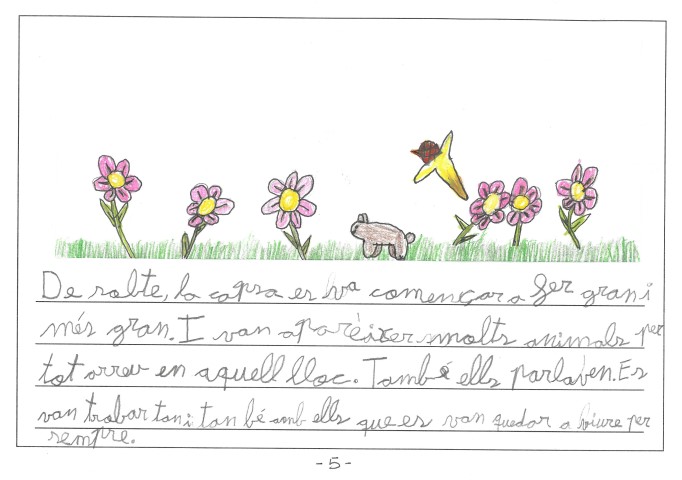 De sobte, la capsa es va començar a fer gran i
més gran. I van aparèixer molts animals per
tot arreu en aquell lloc. També ells parlaven. Es
van trobar tan i tan bé amb ells que es van quedar a viure per
sempre.
-5-